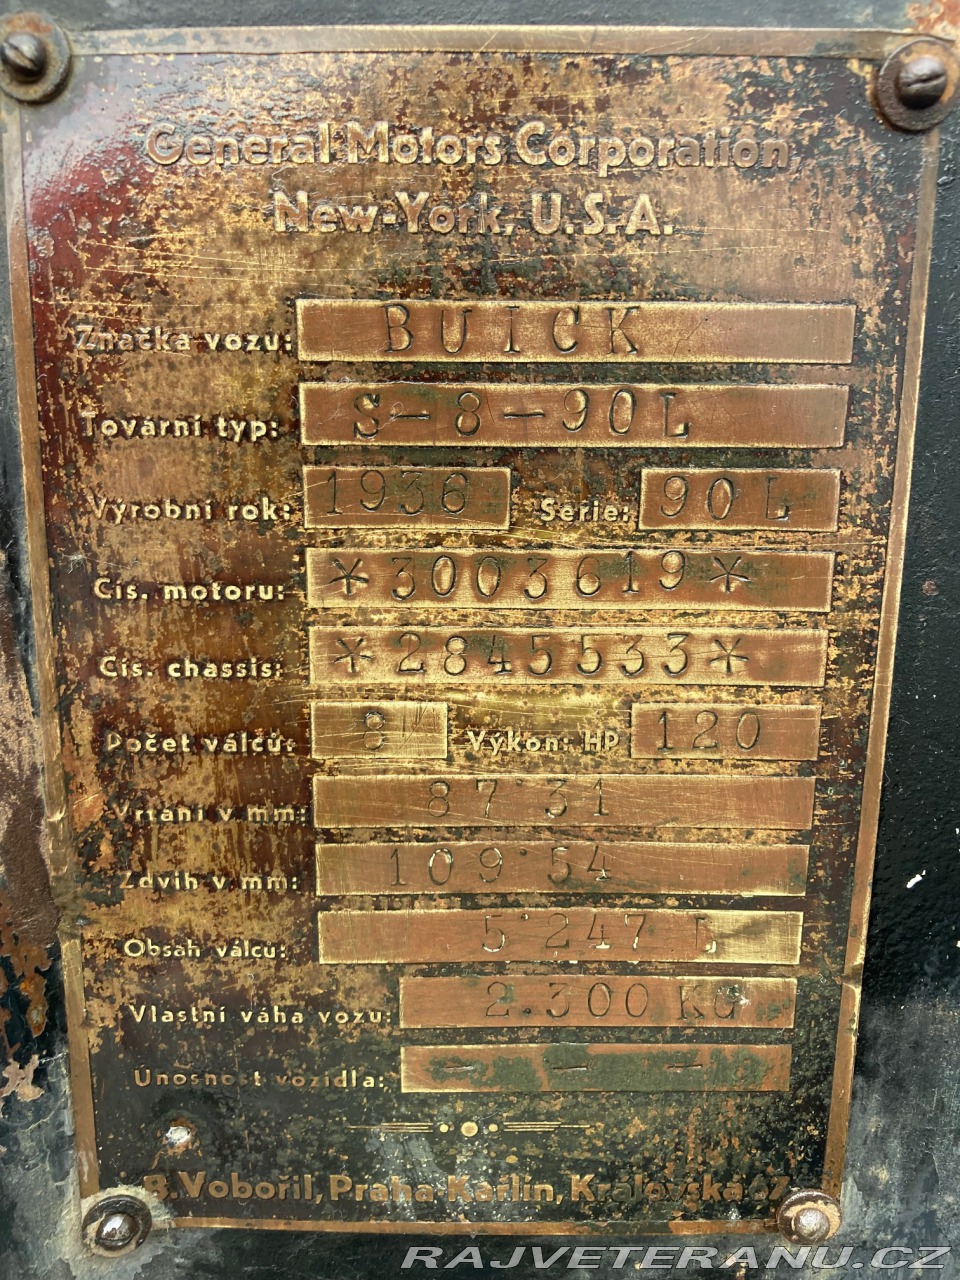 General Motors Corporation,
New-York, U.S.A.
Značka vozu: BUICK
Tovární typ: S-8-90L
Výrobní rok: 1936 Serie: 90L
Čís. motoru: *3003619*
Čís. chassis: *2845533*
Počet válců: 8 Výkon: HP 120
Vrtání v mm: 87·31
Zdvih v mm: 109·54
Obsah válců: 5·247 L
Vlastní váha vozu: 2.300 KG
Únosnost vozidla: - - -
B. Vobořil, Praha-Karlín, Královská 67
RAJVETERANU.CZ